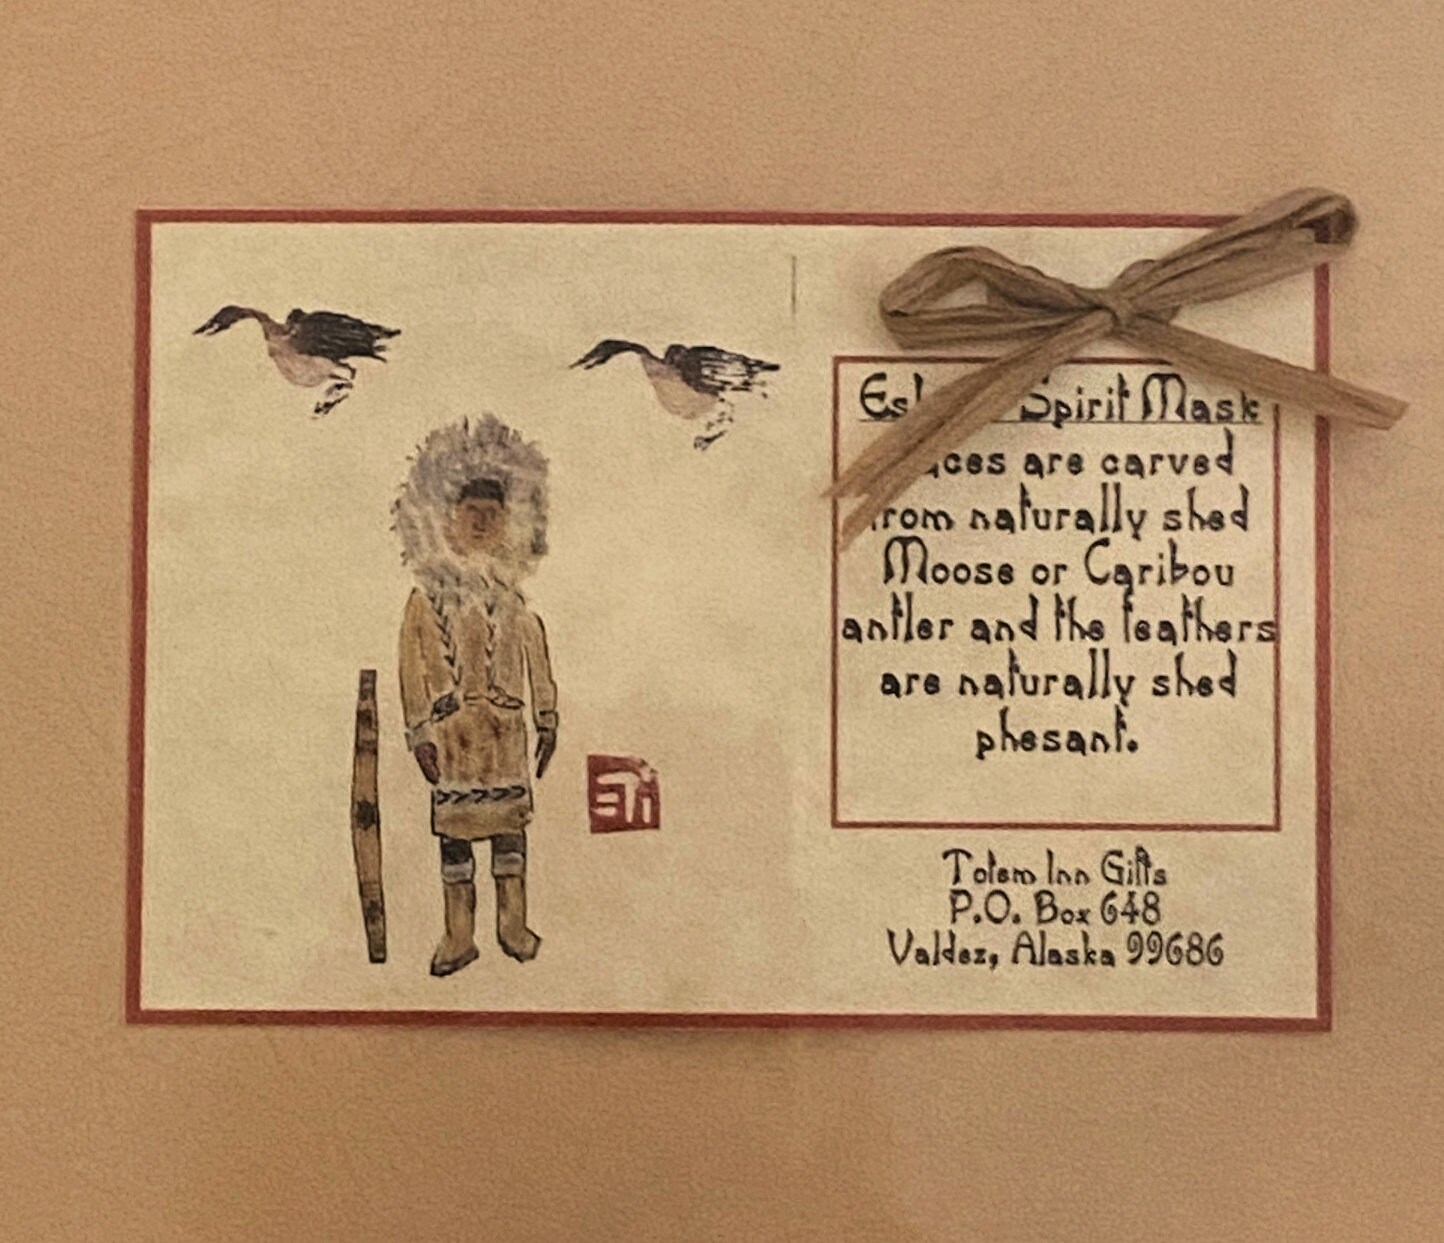 Spirit Mask
are carved
naturally shed
Moose or Caribou
antler and the feathers
are naturally shed
phesant.
Totem Inn Gifts
P.O. Box 648
Valdez, Alaska 99686